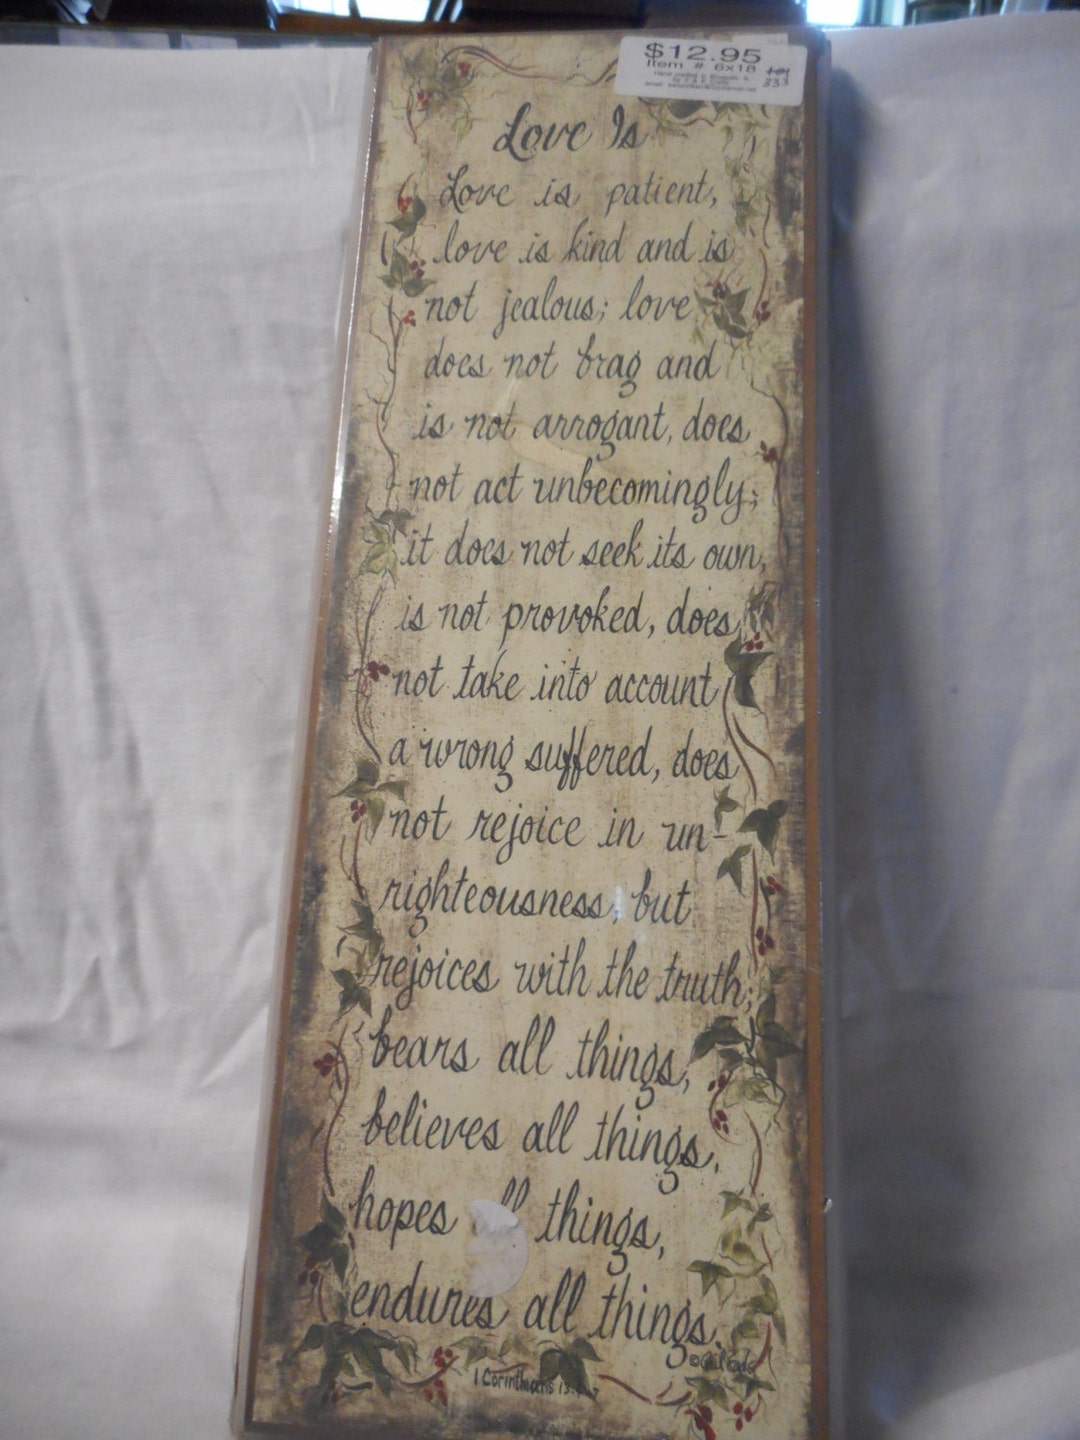 $12.95
Item # 6x18
333
Love Is
Love is patient,
love is kind and is
not jealous; love
does not brag and
is not arrogant, does
not act unbecomingly;
it does not seek its own,
is not provoked, does
not take into account
a wrong suffered, does
not rejoice in un-
righteousness, but
rejoices with the truth;
bears all things,
believes all things,
hopes all things,
endures all things.
1 Corinthians 13: